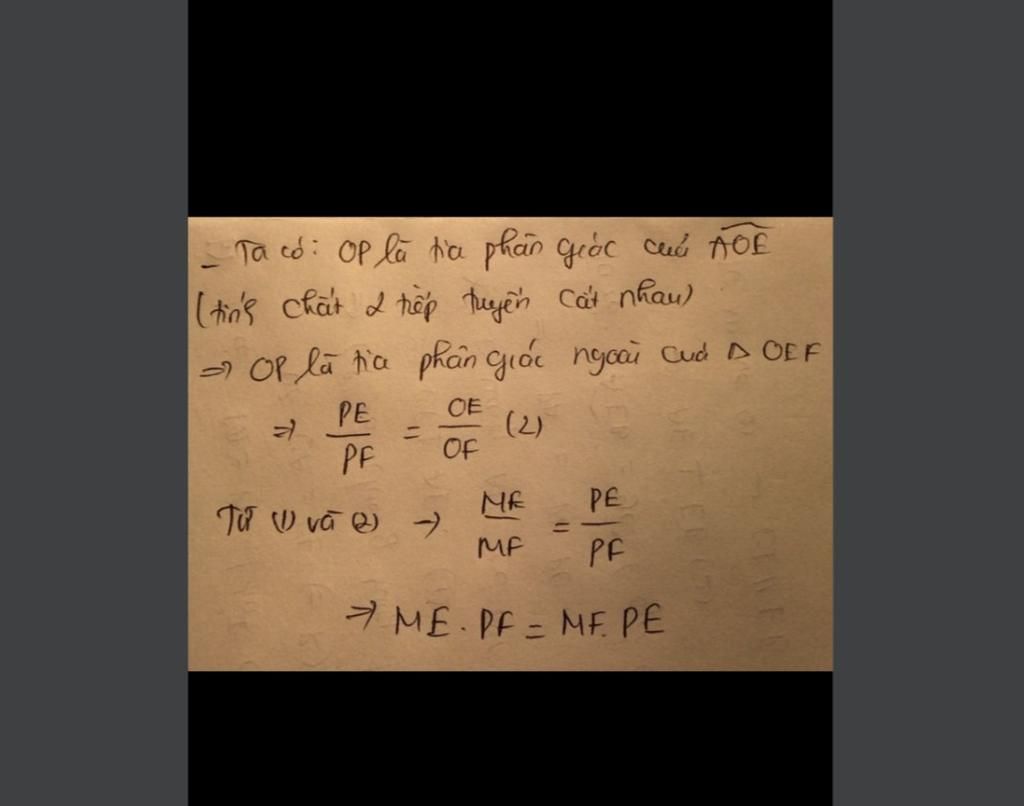 - Ta có: OP là tia phân giác cuả AOE
(tính chất 2 tiếp tuyến cắt nhau)
=> OP là tia phân giác ngoài cuả △ OEF
=> PE/PF = OE/OF (2)
Từ (1) và (2) → ME/MF = PE/PF
=> ME . PF = MF. PE